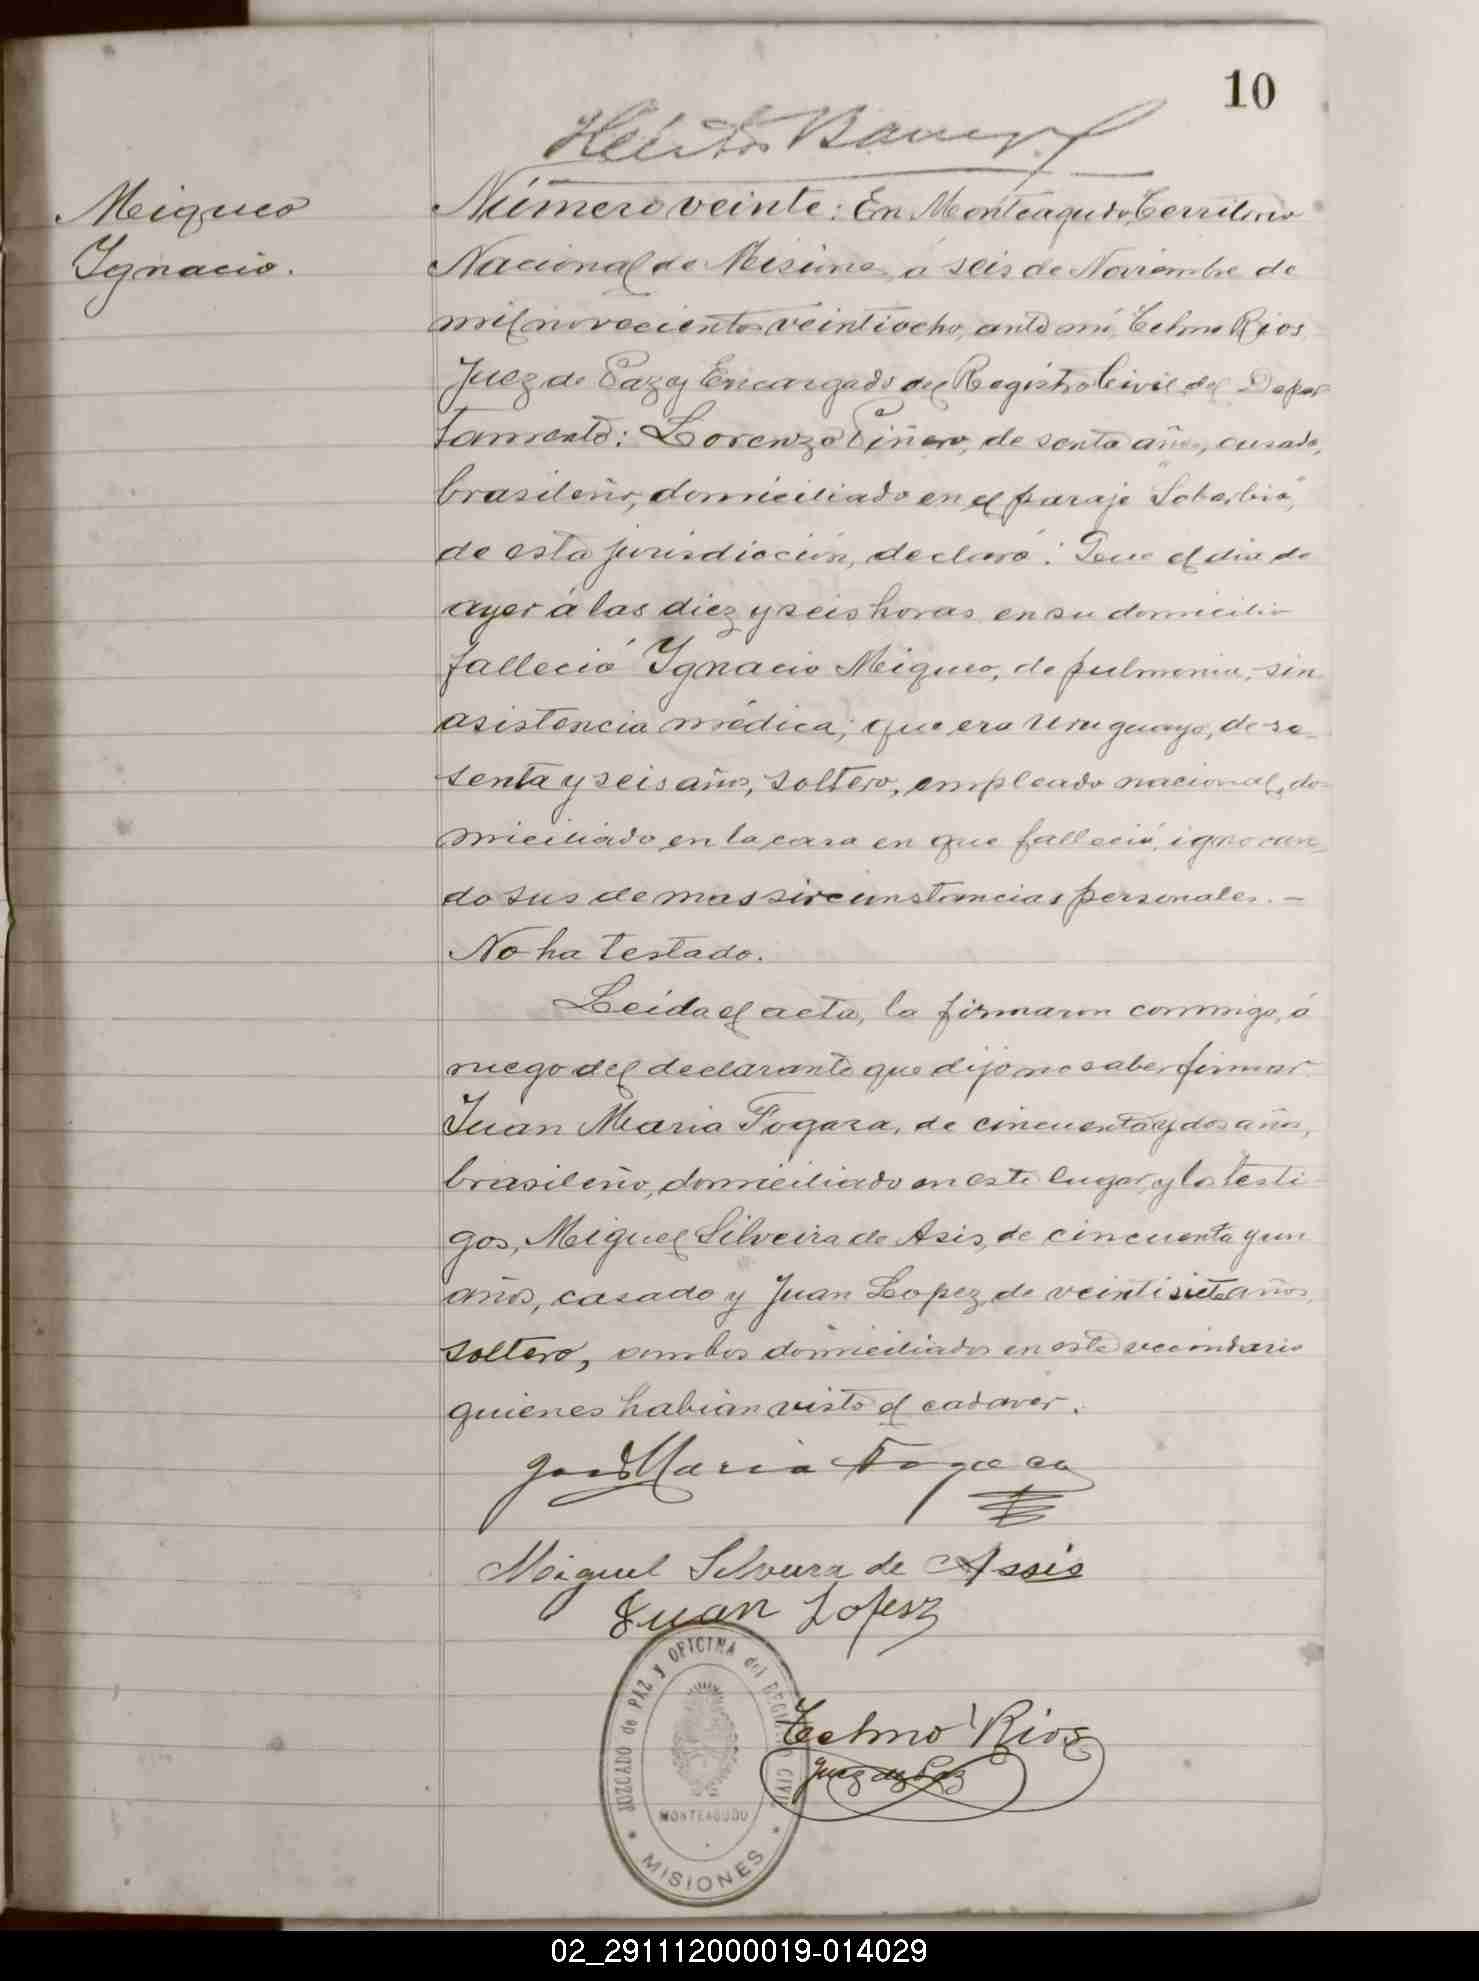 10
Héctor
Meiqueo
Ignacio.
Número veinte: En Monteagudo, Territorio
Nacional de Misiones, á seis de Noviembre de
mil novecientos veintiocho, ante mí, Telmo Rios,
Juez de Paz y Encargado del Registro Civil del Depar
tamento: Lorenzo Piñero, de senta años, casado,
brasileño, domiciliado en el paraje "Soberbio",
de esta jurisdiccion, declaró: Que el dia de
ayer á las diez y seis horas en su domicilio
falleció Ignacio Meiqueo, de pulmonia, sin
asistencia médica; que era Uruguayo, de se-
senta y seis años, soltero, empleado nacional, do-
miciliado en la casa en que falleció, ignoran-
do sus demas sircunstancias personales.-
No ha testado.
Leída el acta, la firmaron conmigo, á
ruego del declarante que dijo no saber firmar
Juan Maria Fogaza, de cincuenta y dos años,
brasileño, domiciliado en este lugar, y los testi-
gos, Miguel Silveira de Asis, de cincuenta y un
años, casado y Juan Lopez, de veintisiete años,
soltero, ambos domiciliados en este vecindario
quienes habian visto el cadaver.
Maria Fogaca
Miguel Silveira de Assis
Juan Lopez
Telmo Rios
Juez de Paz
JUZGADO de PAZ y OFICINA del REGISTRO CIVIL
MONTEAGUDO
MISIONES
02_291112000019-014029